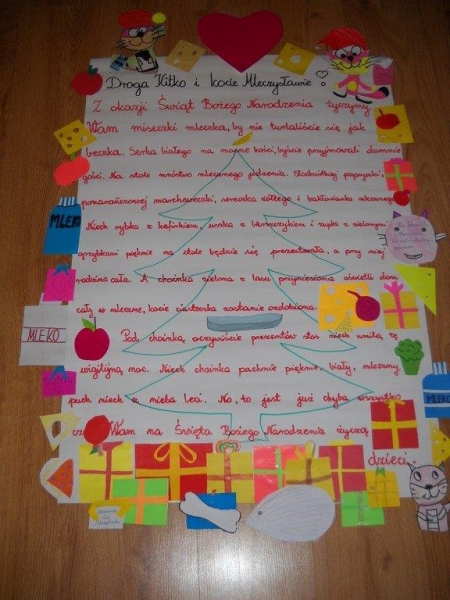 Droga Kitko i kocie Mleczysławie!
Z okazji Świąt Bożego Narodzenia życzymy
Wam miseczki mleczka, by nie turlaliście się jak
beczka. Serka białego na mocne kości, byście przyjmowali dumnie
gości. Na stole mnóstwo mlecznego jedzenia. Słodziutkiej papryki i
pomarańczowej marcheweczki, serka żółtego i
Niech rybka z kefirkiem, z i zupka z zielonymi
grzybkami pięknie na stole będzie się prezentowała, a przy niej
rodzina cała. A choinka zielona z lasu przyniesiona oświetli dom
cały w mleczne, kocie ciasteczka zostanie ozdobiona.
Pod choinką oczywiście prezentów stos niech umilą tę
wigilijną noc. Niech choinka pachnie pięknie, biały, mleczny
puch niech z nieba leci. No, to jest już chyba wszystko
Wam na Święta Bożego Narodzenia życzą
dzieci.
MLEKO
MLEKO
MLEKO